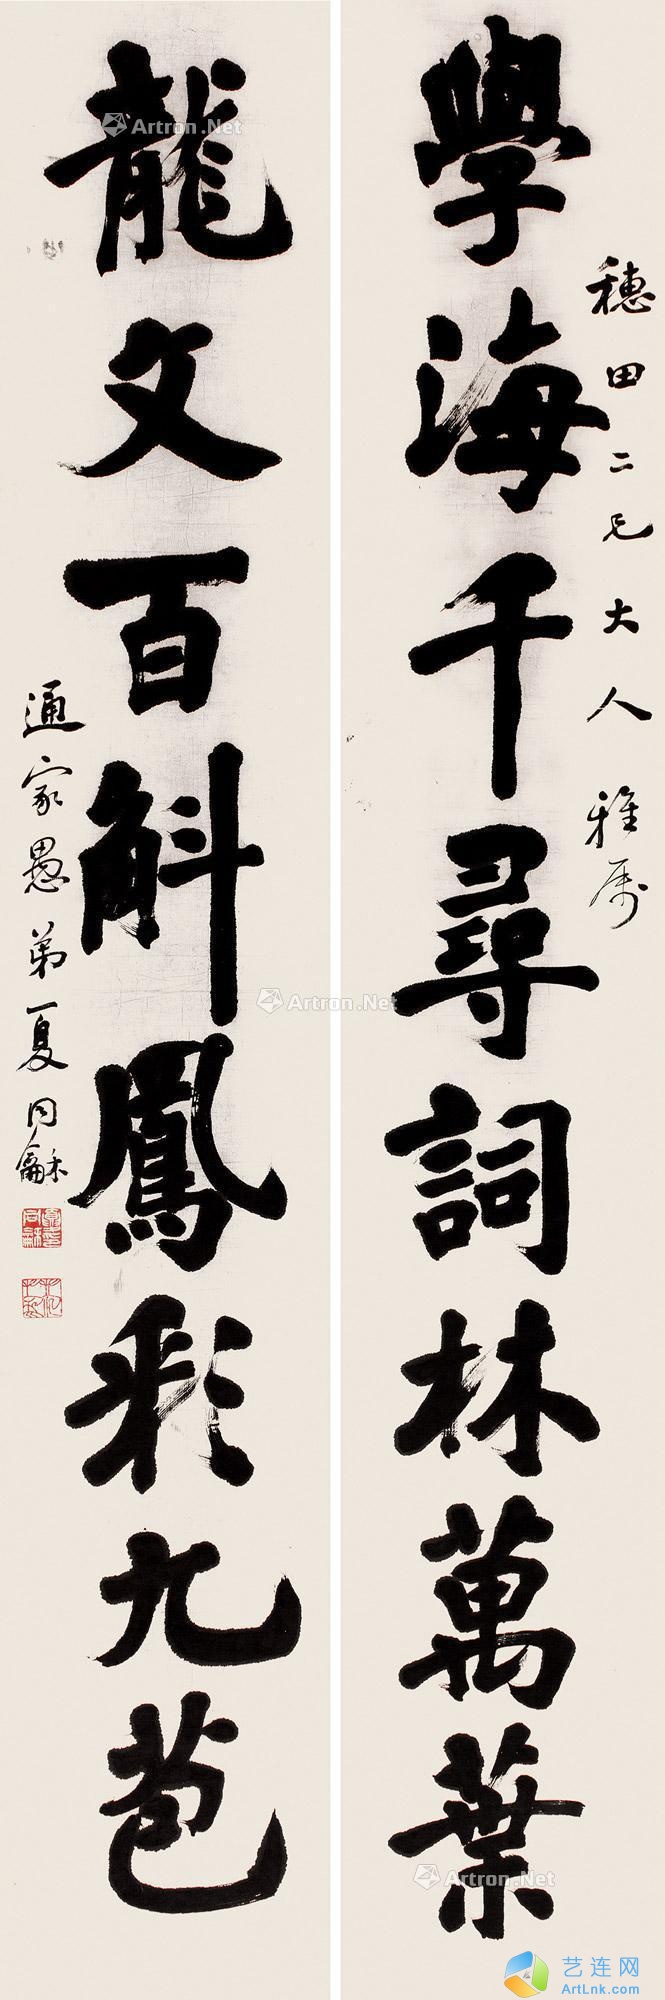 穗田二兄大人雅属
學海千尋詞林萬葉
龍文百斛鳳彩九苞
通家愚弟夏同龢
Artron.Net
Artron.Net
Artron.Net
艺连网
ArtLnk.com